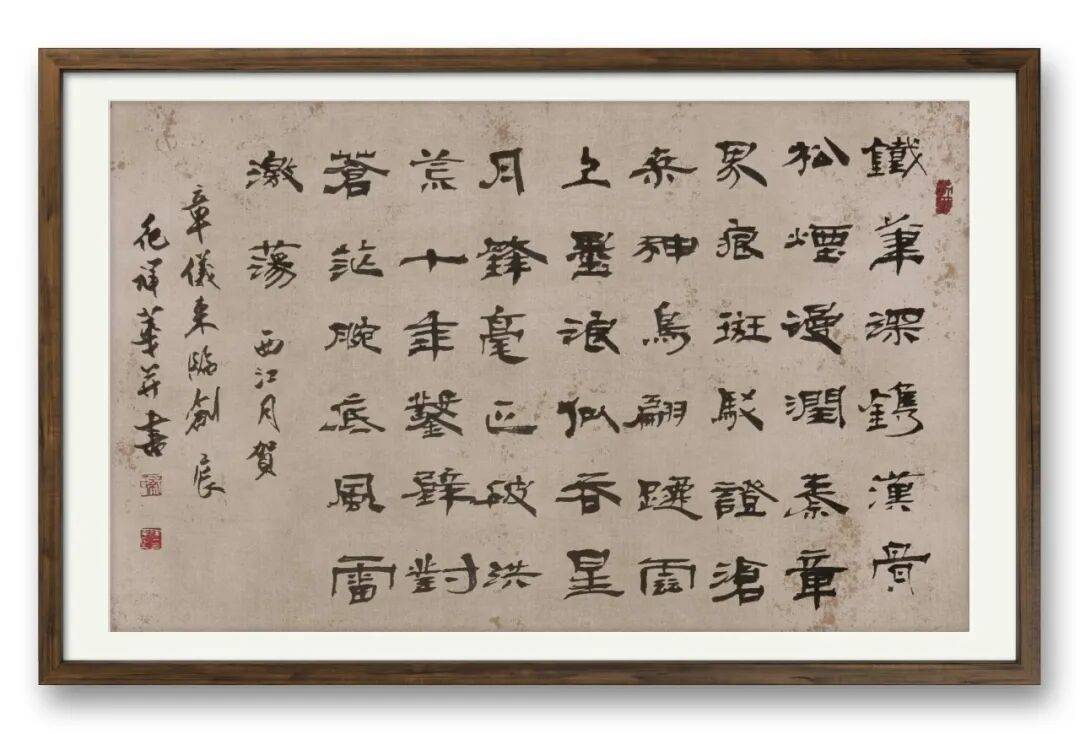 鐵筆深鐫漢骨
松煙漫潤秦章
界痕斑駁證滄
桑神鳥翩躚雲
上墨浪似吞星
月鋒毫正破洪
荒十年鑿壁對
蒼茫腕底風雷
激蕩 西江月賀
章儀東臨創展
祥華并書